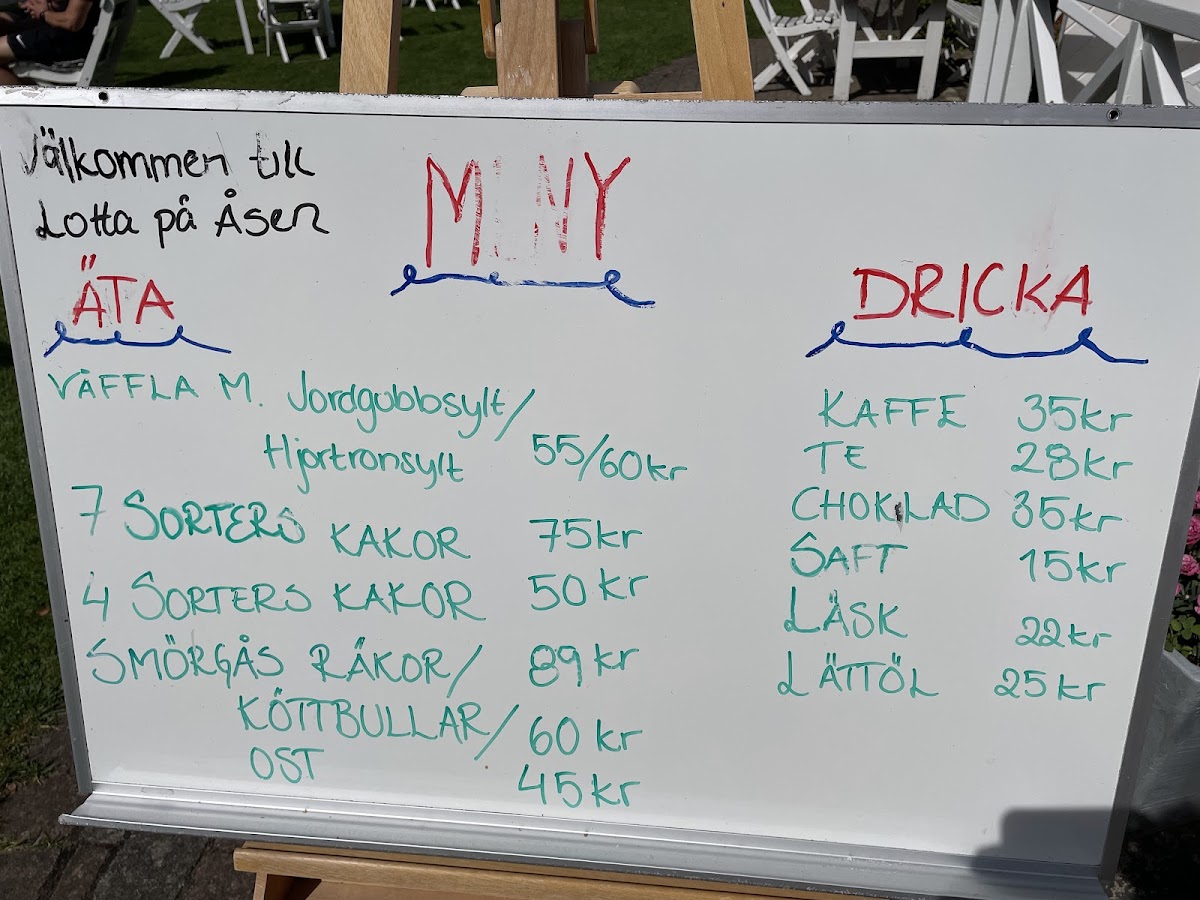 Välkommen till
Lotta på Åsen
MENY
ÄTA
VÅFFLA M. Jordgubbsylt/
Hjortronsylt 55/60kr
7 SORTERS KAKOR 75kr
4 SORTERS KAKOR 50kr
SMÖRGÅS RÄKOR/ 89kr
KÖTTBULLAR/ 60 kr
OST 45kr
DRICKA
KAFFE 35kr
TE 28kr
CHOKLAD 35kr
SAFT 15kr
LÄSK 22kr
LÄTTÖL 25kr